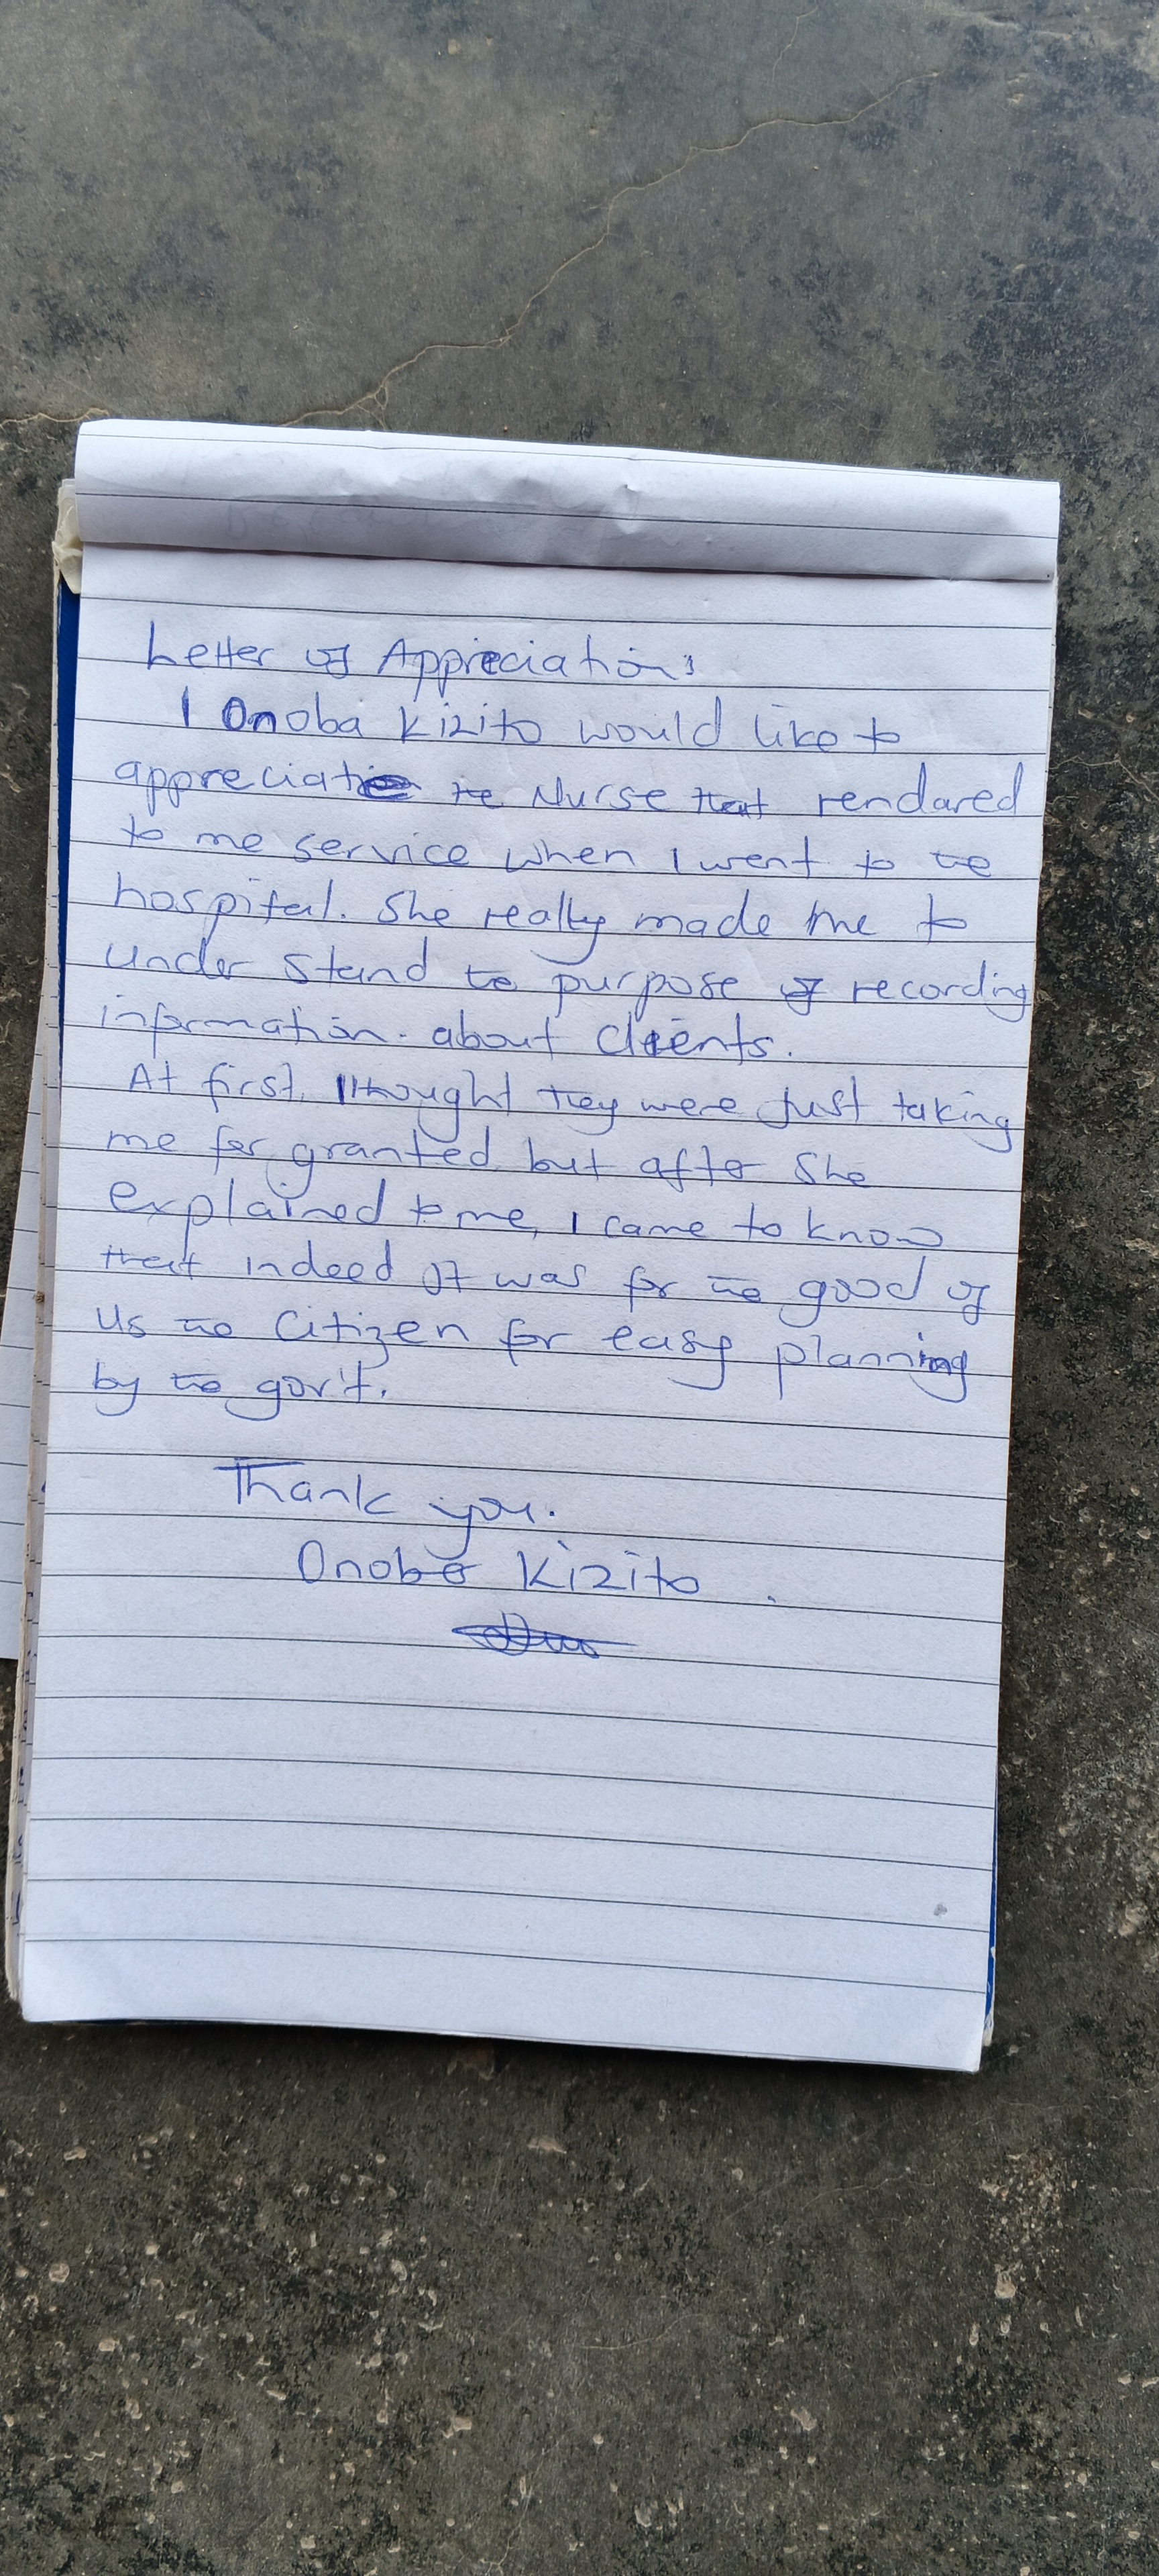 Letter of Appreciation:
I Onoba Kizito would like to
appreciate the Nurse that rendared
to me service when I went to the
hospital. She really made me to
under stand the purpose of recording
information. about clients.
At first, I thought they were just taking
me for granted but after she
explained to me, I came to know
that indeed it was for the good of
us the citizen for easy planning
by the gov't.
Thank you.
Onoba Kizito.